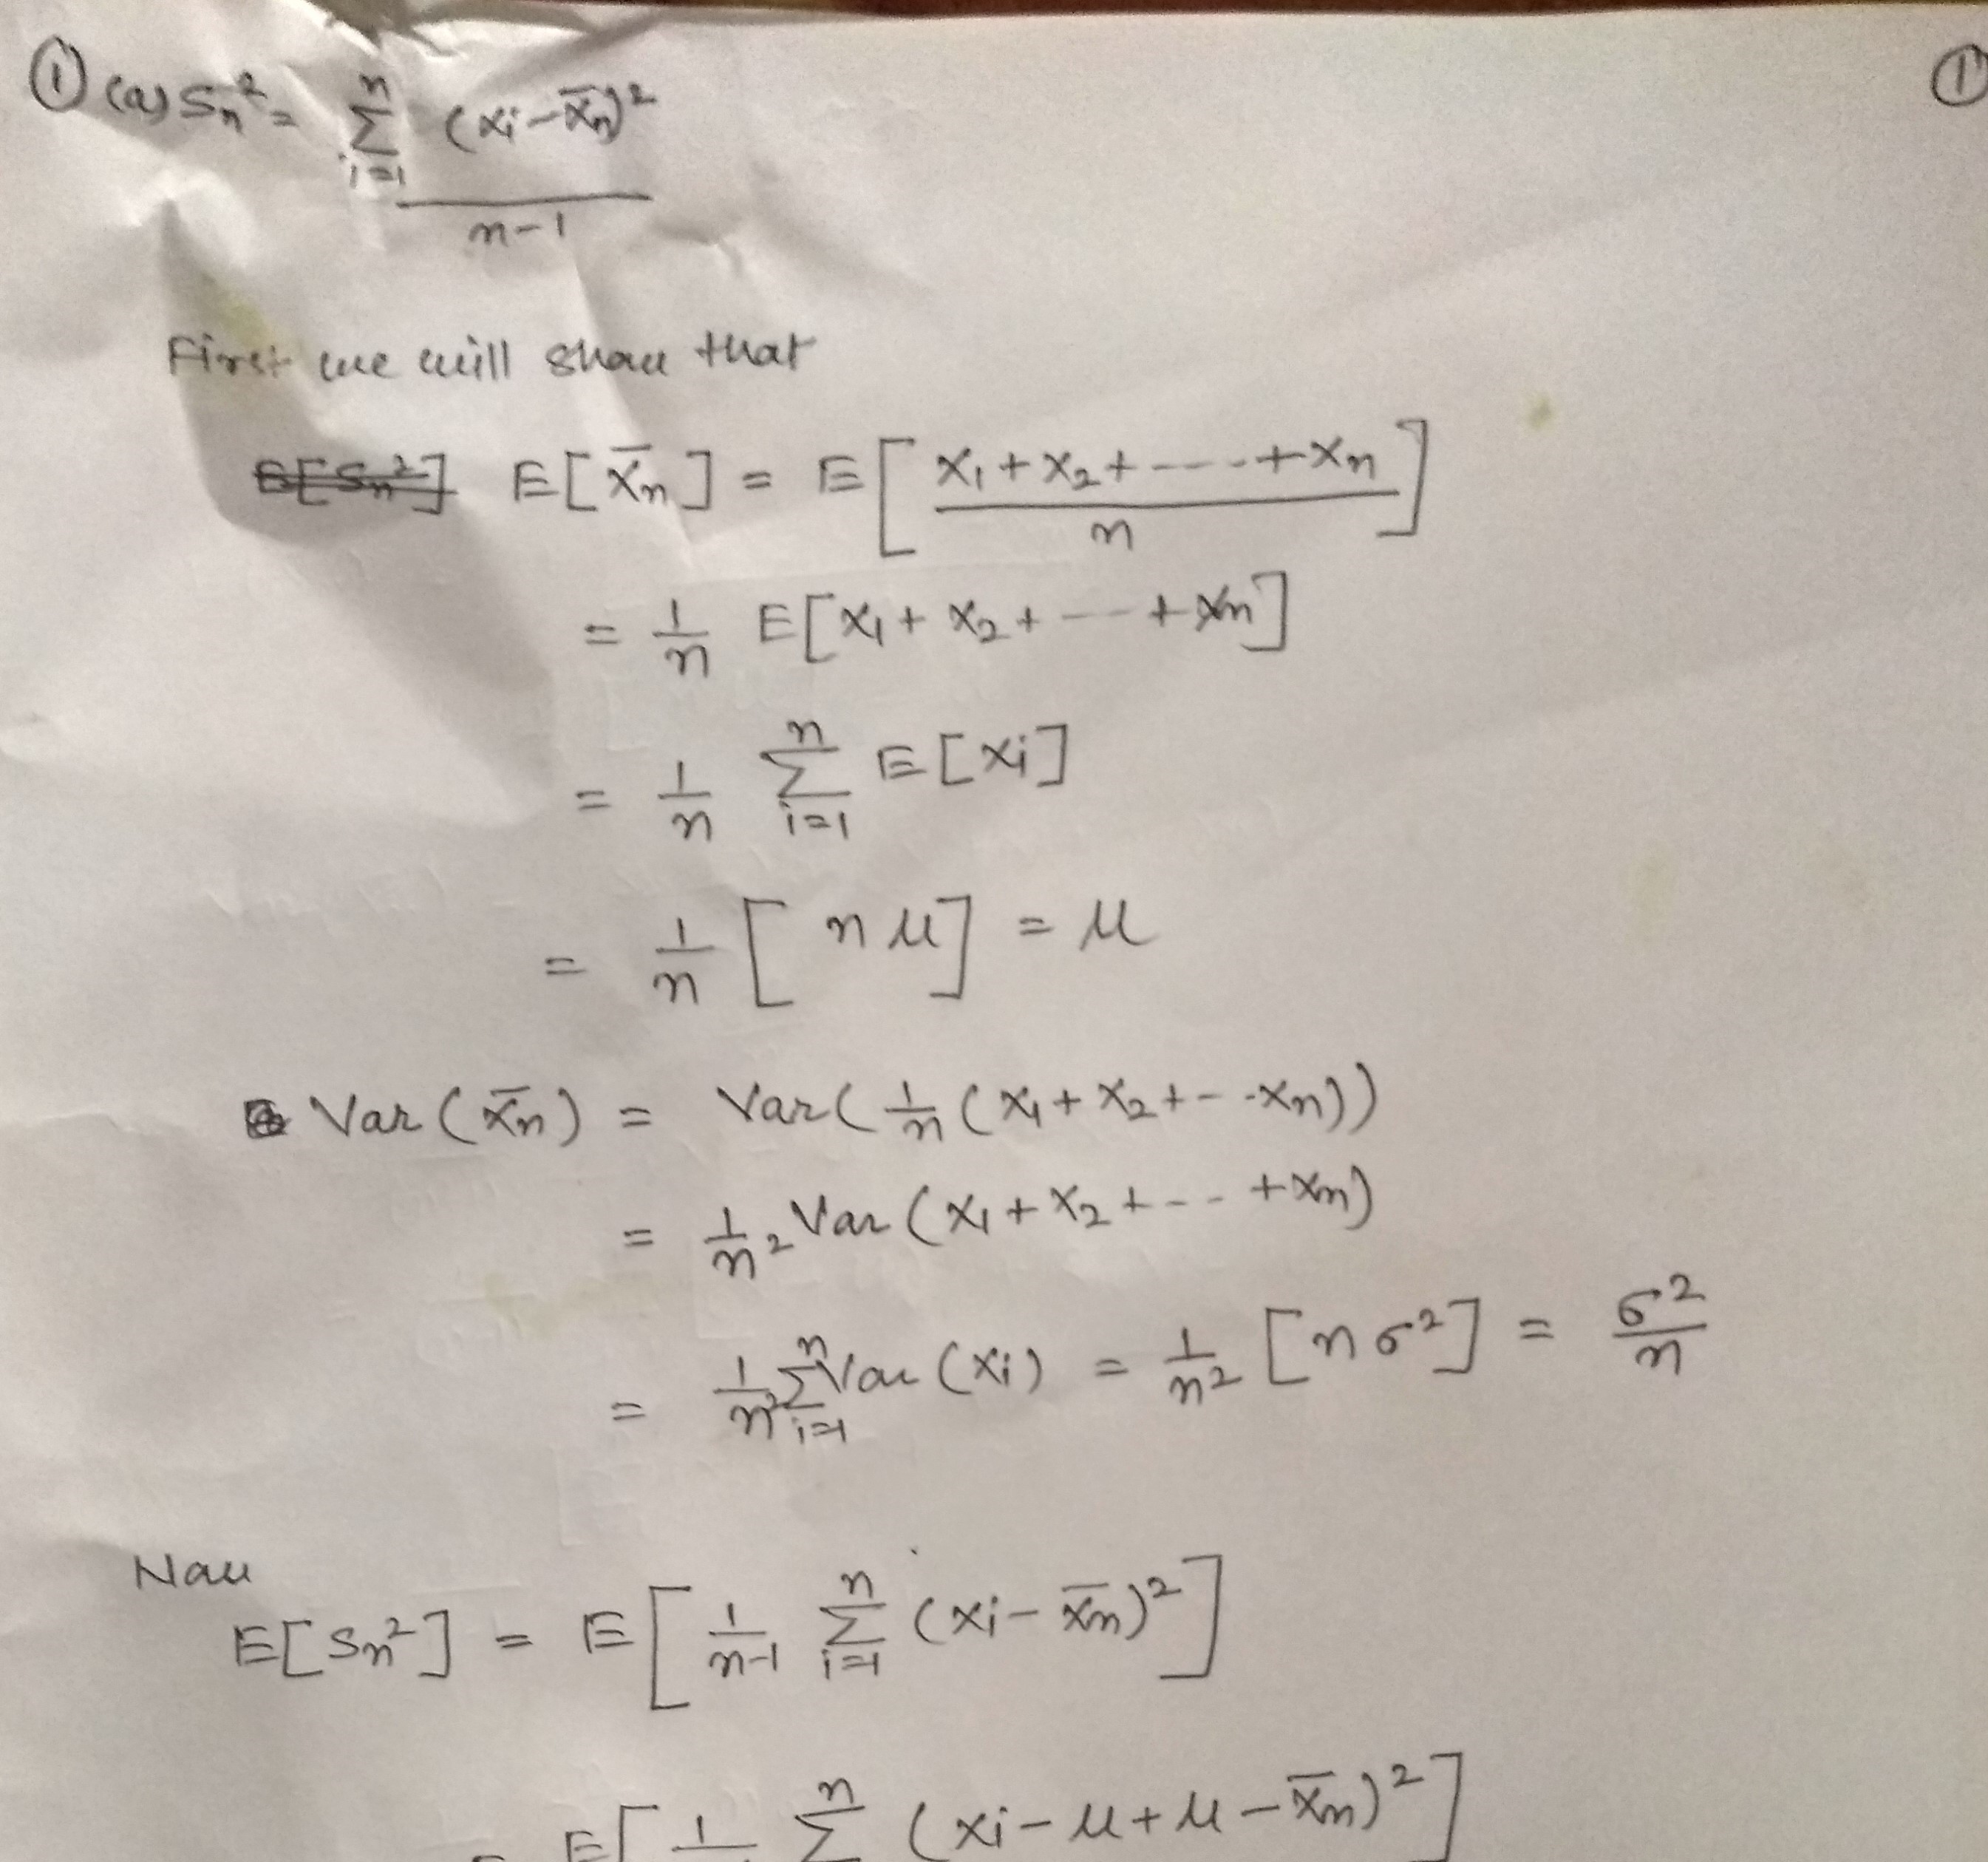 ① (a) Sn² = Σ_{i=1}^{n} (xi - x̄n)² / n-1
①
First we will show that
E[Sn²] E[X̄n] = E[ (X1 + X2 + ---- + Xn) / n ]
= 1/n E[X1 + X2 + --- + Xn]
= 1/n Σ_{i=1}^{n} E[Xi]
= 1/n [nμ] = μ
Var(X̄n) = Var(1/n (X1 + X2 + -- Xn))
= 1/n² Var(X1 + X2 + --- + Xn)
= 1/n² Σ_{i=1}^{n} Var(Xi) = 1/n² [nσ²] = σ²/n
Now
E[Sn²] = E[ 1/n-1 Σ_{i=1}^{n} (Xi - X̄n)² ]
= E[ 1 Σ^{n} (Xi - μ + μ - X̄n)² ]